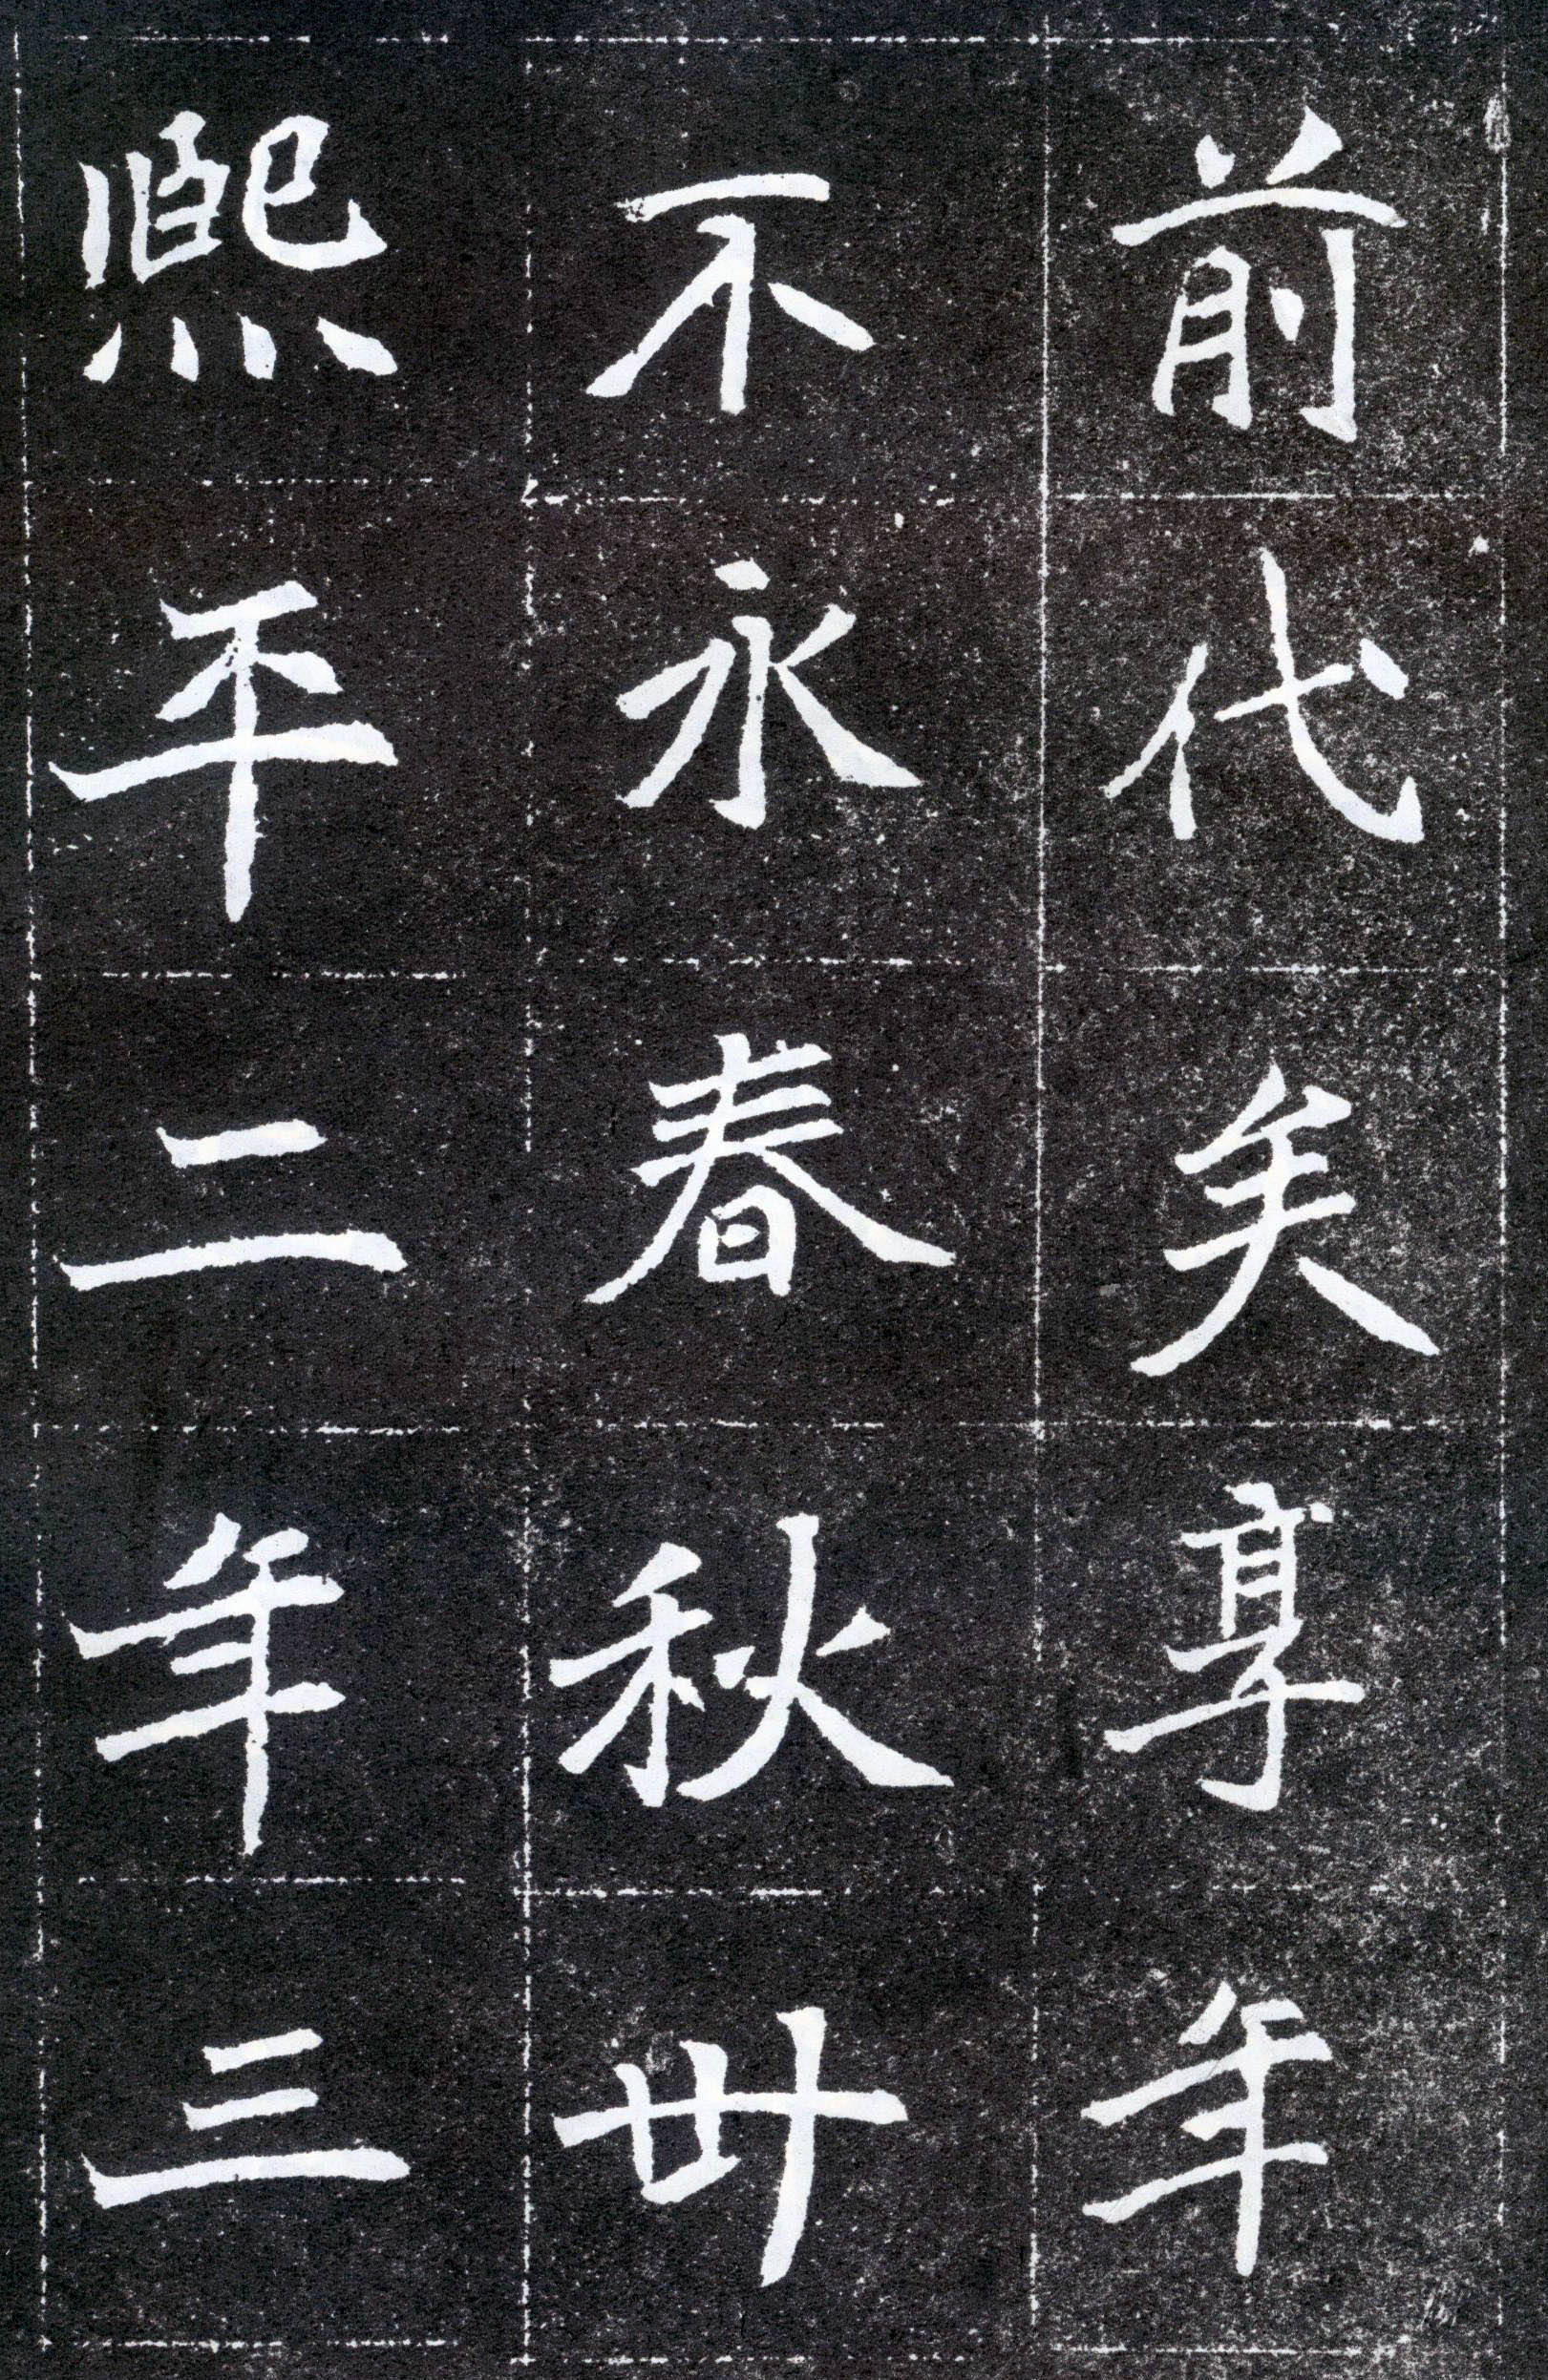 前代矣享年
不永春秋卌
熙平二年三